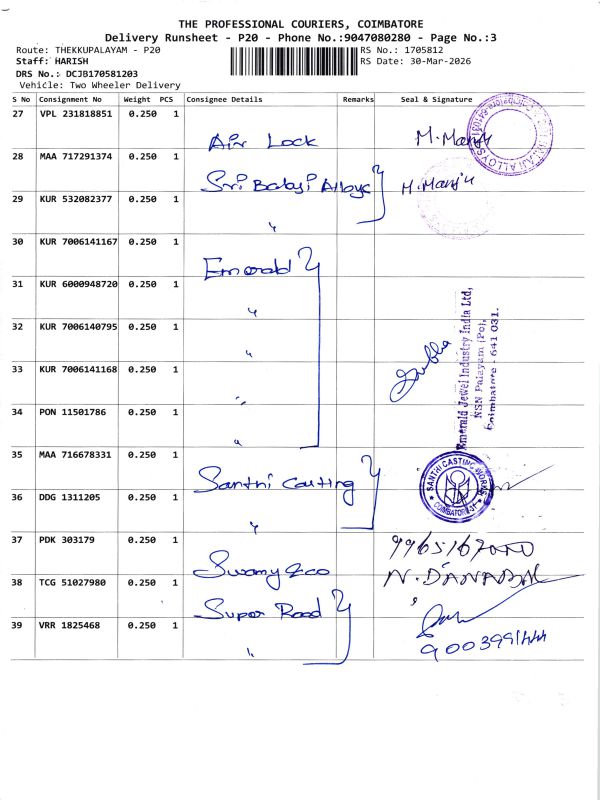 THE PROFESSIONAL COURIERS, COIMBATORE
Delivery Runsheet - P20 - Phone No.:9047080280 - Page No.:3
Route: THEKKUPALAYAM - P20
RS No.: 1705812
Staff: HARISH
RS Date: 30-Mar-2026
DRS No.: DCJB170581203
Vehicle: Two Wheeler Delivery
S No Consignment No Weight PCS Consignee Details Remarks Seal & Signature
27 VPL 231818851 0.250 1 Air Lock M.Manju
28 MAA 717291374 0.250 1 Sri Balaji Alloys M.Manju
29 KUR 532082377 0.250 1 "
30 KUR 7006141167 0.250 1 Emerald
31 KUR 6000948720 0.250 1 "
32 KUR 7006140795 0.250 1 "
33 KUR 7006141168 0.250 1 "
34 PON 11501786 0.250 1 "
Emerald Jewel Industry India Ltd,
NSN Palayam (Po),
Coimbatore - 641 031.
35 MAA 716678331 0.250 1 Santhi Casting
SANTHI CASTING WORKS
COIMBATORE
36 DDG 1311205 0.250 1 "
37 PDK 303179 0.250 1 Swamy & co
N. DANABAL
38 TCG 51027980 0.250 1 Super Road
39 VRR 1825468 0.250 1 "